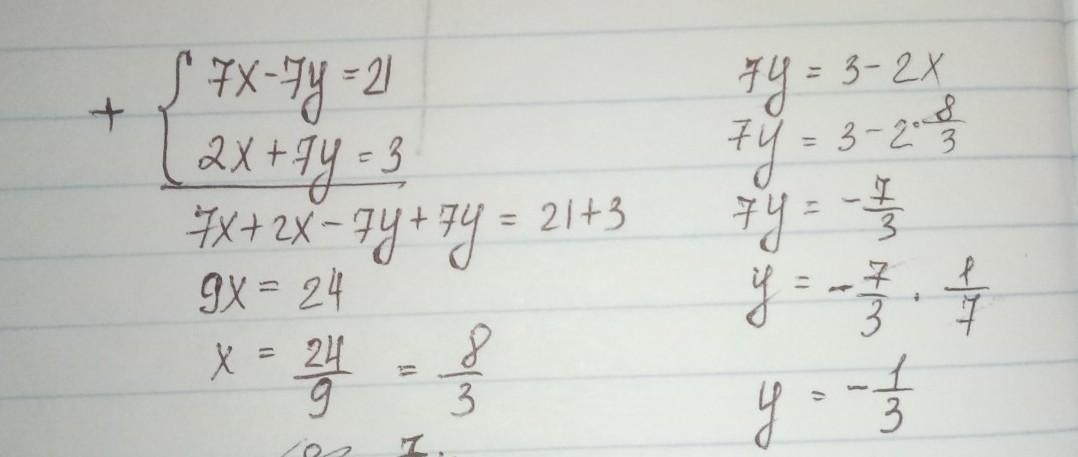 + { 7x-7y=21
2x+7y=3
7x+2x-7y+7y = 21+3
9x = 24
x = 24/9 = 8/3
7y = 3-2x
7y = 3-2·8/3
7y = -7/3
y = -7/3 · 1/7
y = -1/3